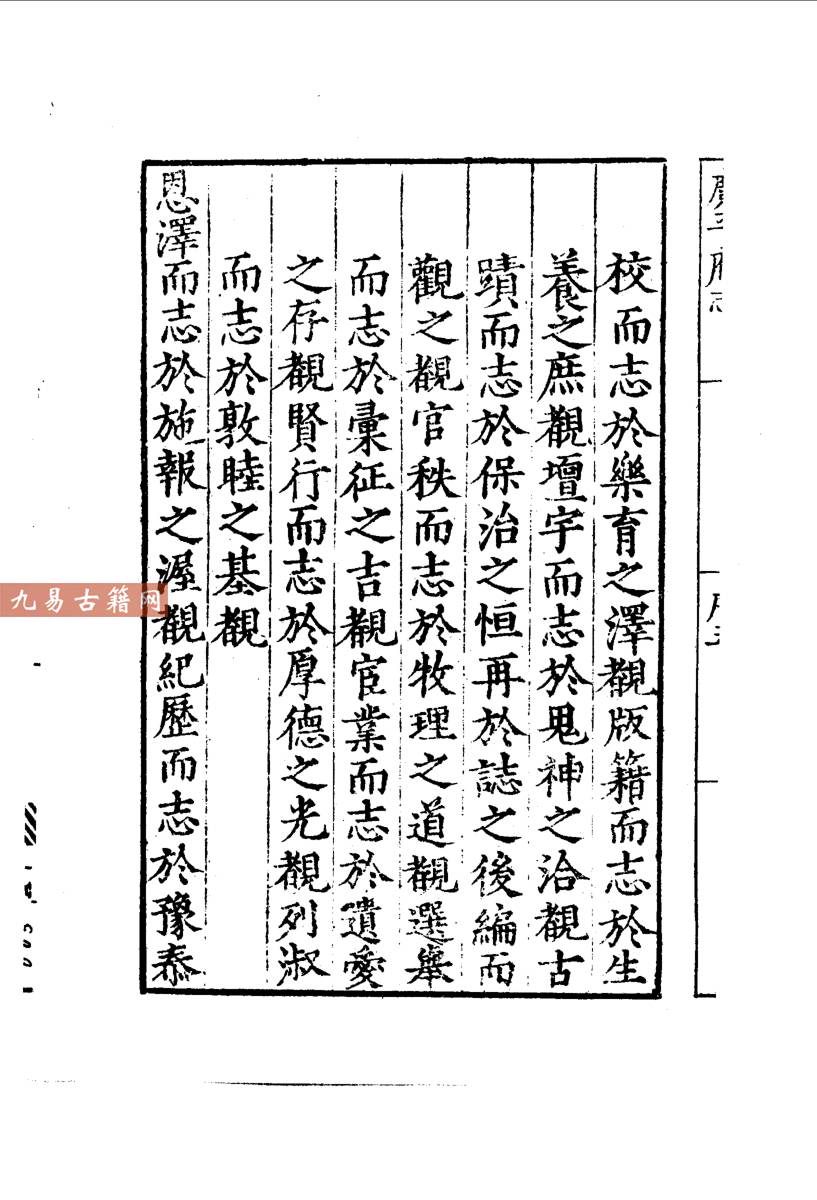 廣平府志
校而志於樂育之澤觀版籍而志於生
養之庶觀壇宇而志於鬼神之洽觀古
蹟而志於保治之恒再於誌之後編而
觀之觀官秩而志於牧理之道觀選舉
而志於彙征之吉觀宦業而志於遺愛
之存觀賢行而志於厚德之光觀列淑
而志於敦睦之基觀
恩澤而志於施報之渥觀紀歷而志於豫泰
九易古籍网